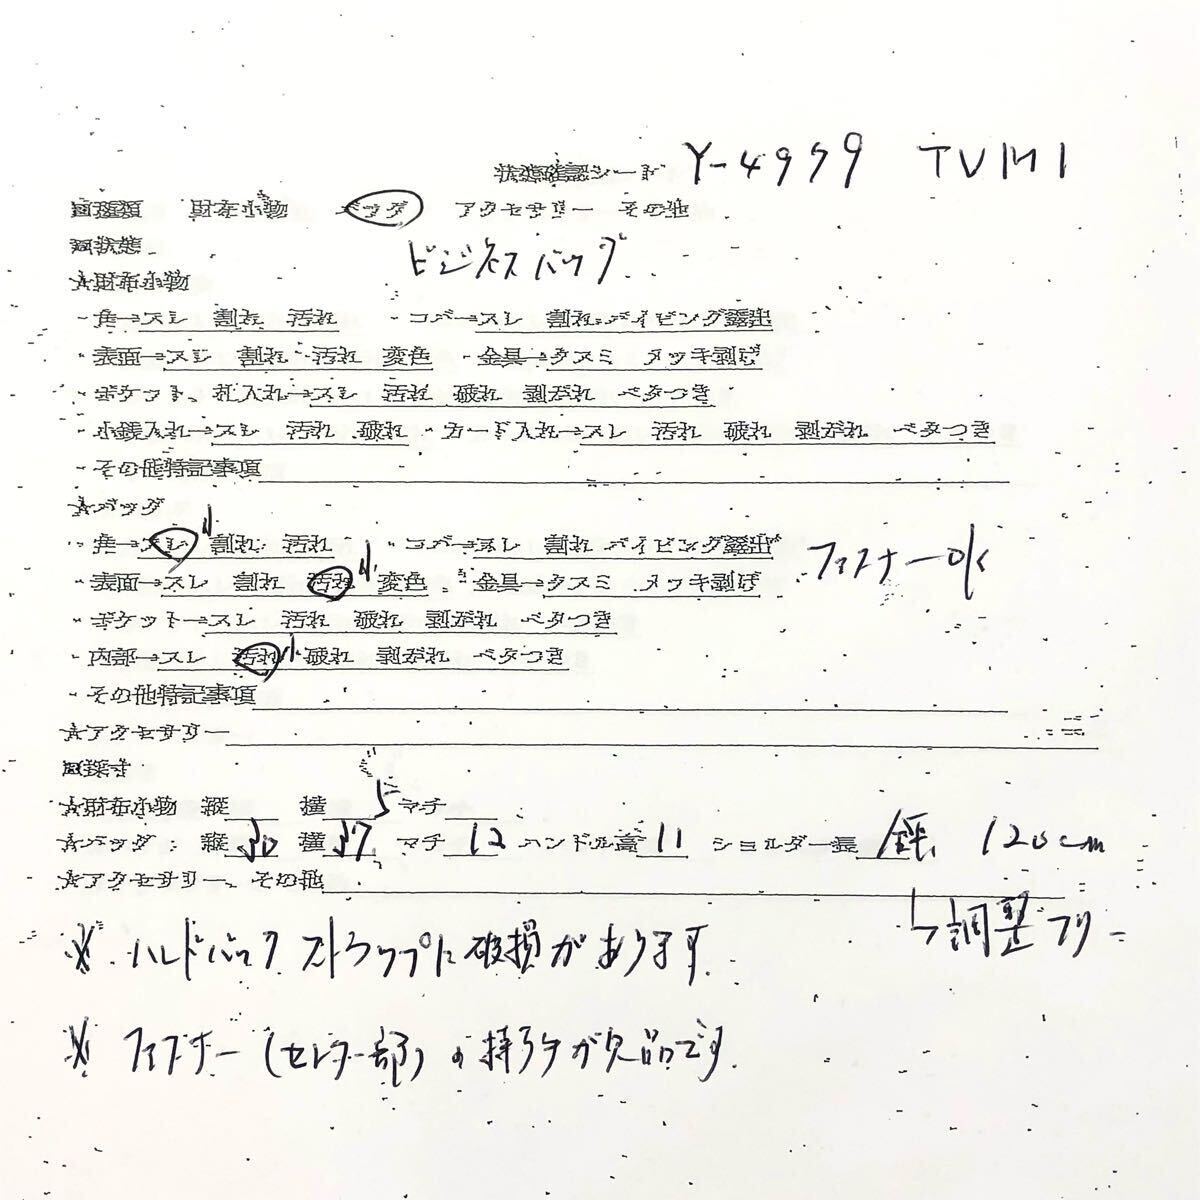 状態確認シート Y-4979 TUMI
□種類 財布小物 バッグ アクセサリー その他
□状態 ビジネスバッグ
☆財布小物
・角→スレ 割れ 汚れ ・コバ→スレ 割れ パイピング露出
・表面→スレ 割れ 汚れ 変色 ・金具→クスミ メッキ剥げ
・ポケット、札入れ→スレ 汚れ 破れ 剥がれ ベタつき
・小銭入れ→スレ 汚れ 破れ ・カード入れ→スレ 汚れ 破れ 剥がれ ベタつき
・その他特記事項
☆バッグ
・角→スレ 小 割れ 汚れ ・コバ→スレ 割れ パイピング露出 ファスナーOK
・表面→スレ 割れ 汚れ 小 変色 ・金具→クスミ メッキ剥げ
・ポケット→スレ 汚れ 破れ 剥がれ ベタつき
・内部→スレ 汚れ 小 破れ 剥がれ ベタつき
・その他特記事項
☆アクセサリー
□採寸
☆財布小物 縦 横 マチ
☆バッグ: 縦 30 横 37 マチ 12 ハンドル高 11 ショルダー長 120cm
☆アクセサリー、その他
↳調整フリー
※ ハンドバック ストラップに破損があります.
※ ファスナー(センター部)の持ち手が欠品です.